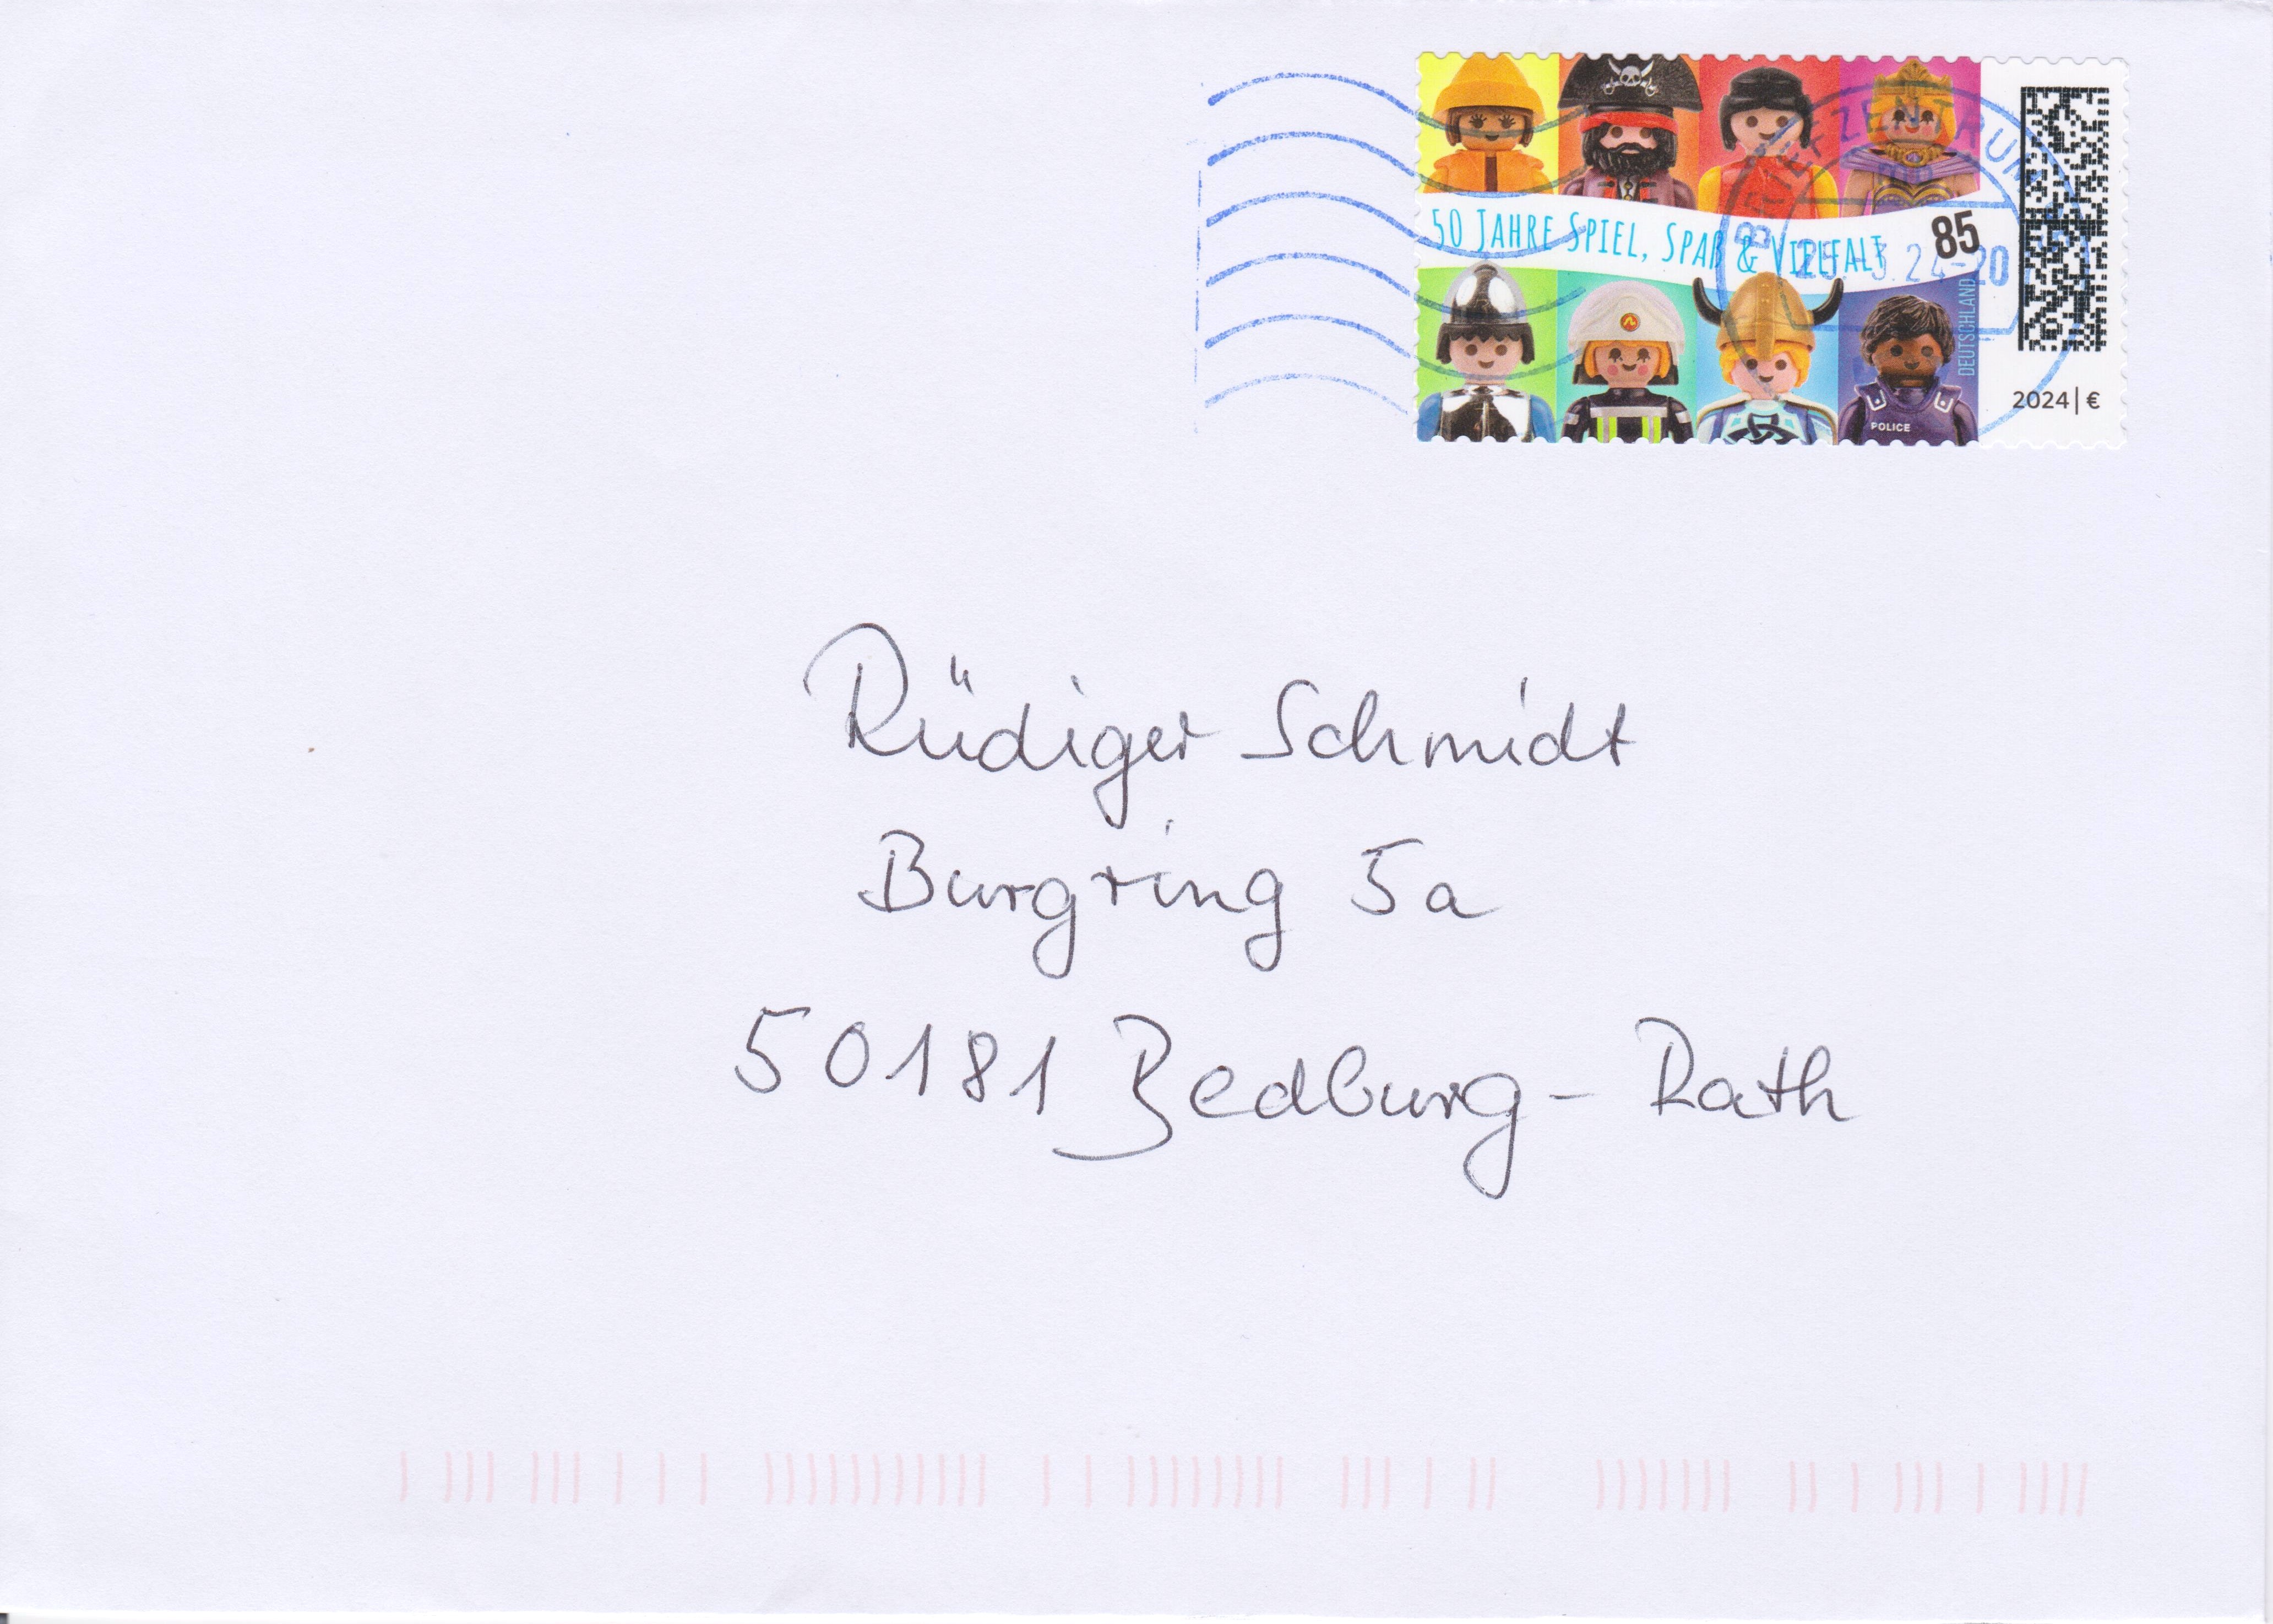 50 JAHRE SPIEL, SPAß & VIELFALT
85
DEUTSCHLAND
POLICE
2024|€
BRIEFZENTRUM
Rüdiger Schmidt
Burgring 5a
50181 Bedburg-Rath